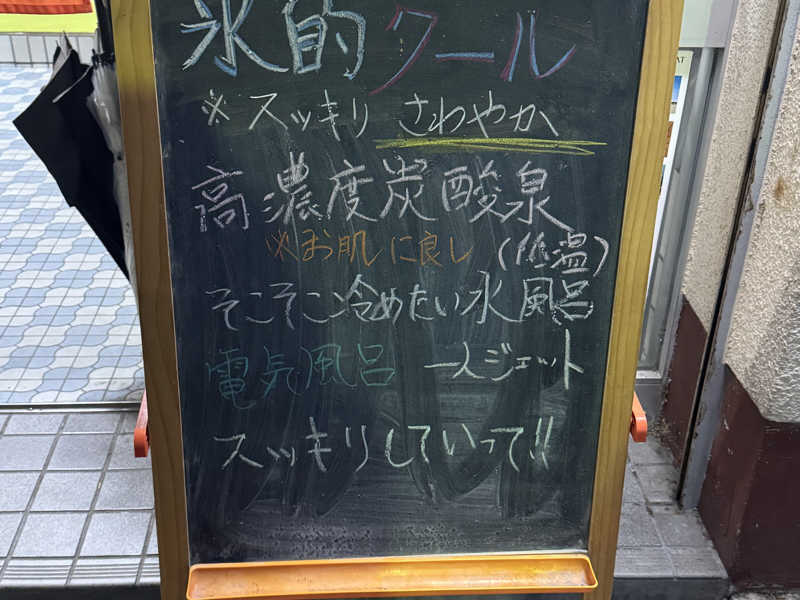 氷的クール
※スッキリ さわやか
高濃度炭酸泉
※お肌に良し (低温)
そこそこ冷めたい水風呂
電気風呂 一人ジェット
スッキリしていって!!